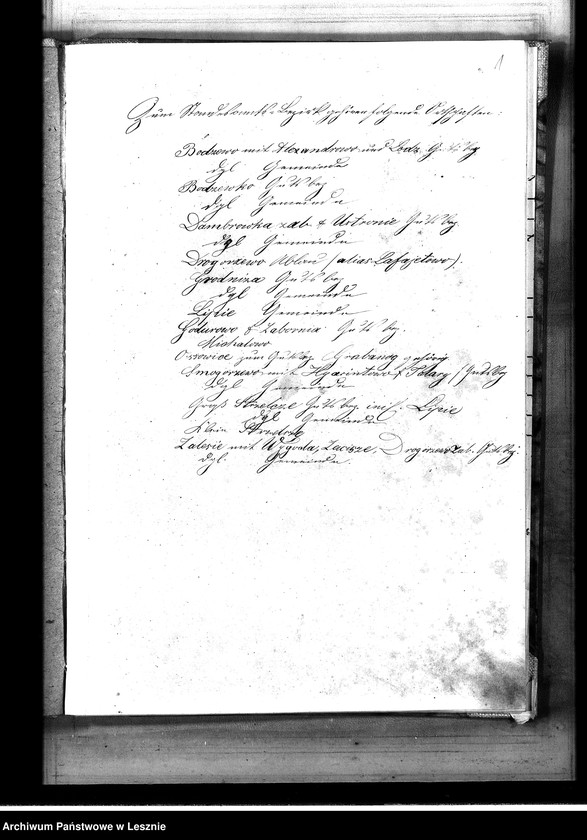 1
Zum Standesamts-Bezirk gehören folgende Ortschaften:
Bodzewo mit Alexandrowo und Lodz. Gutsbez
dgl Gemeinde
Bodzewko Gutsbez
dgl Gemeinde
Dambrowka zab. & Ustronie Gutsbez.
dgl Gemeinde
Drogorzewo (alias Lafajetowo).
Grodnica Gutsbez
dgl Gemeinde
Lipie Gemeinde
Godurowo & Zabornia Gutsbez.
Michalowo
Ossowiec zum Gutsbez Grabonog gehörig
Smogorzewo mit Hyacintowo & Talary / Gutsbez
dgl Gemeinde
Groß Strzelcze Gutsbez. incl. Lipie
dgl Gemeinde
Klein Strzelcze
Zalesie mit Wygoda, Zacisze, Gutsbez:
dgl. Gemeinde.
Archiwum Państwowe w Lesznie